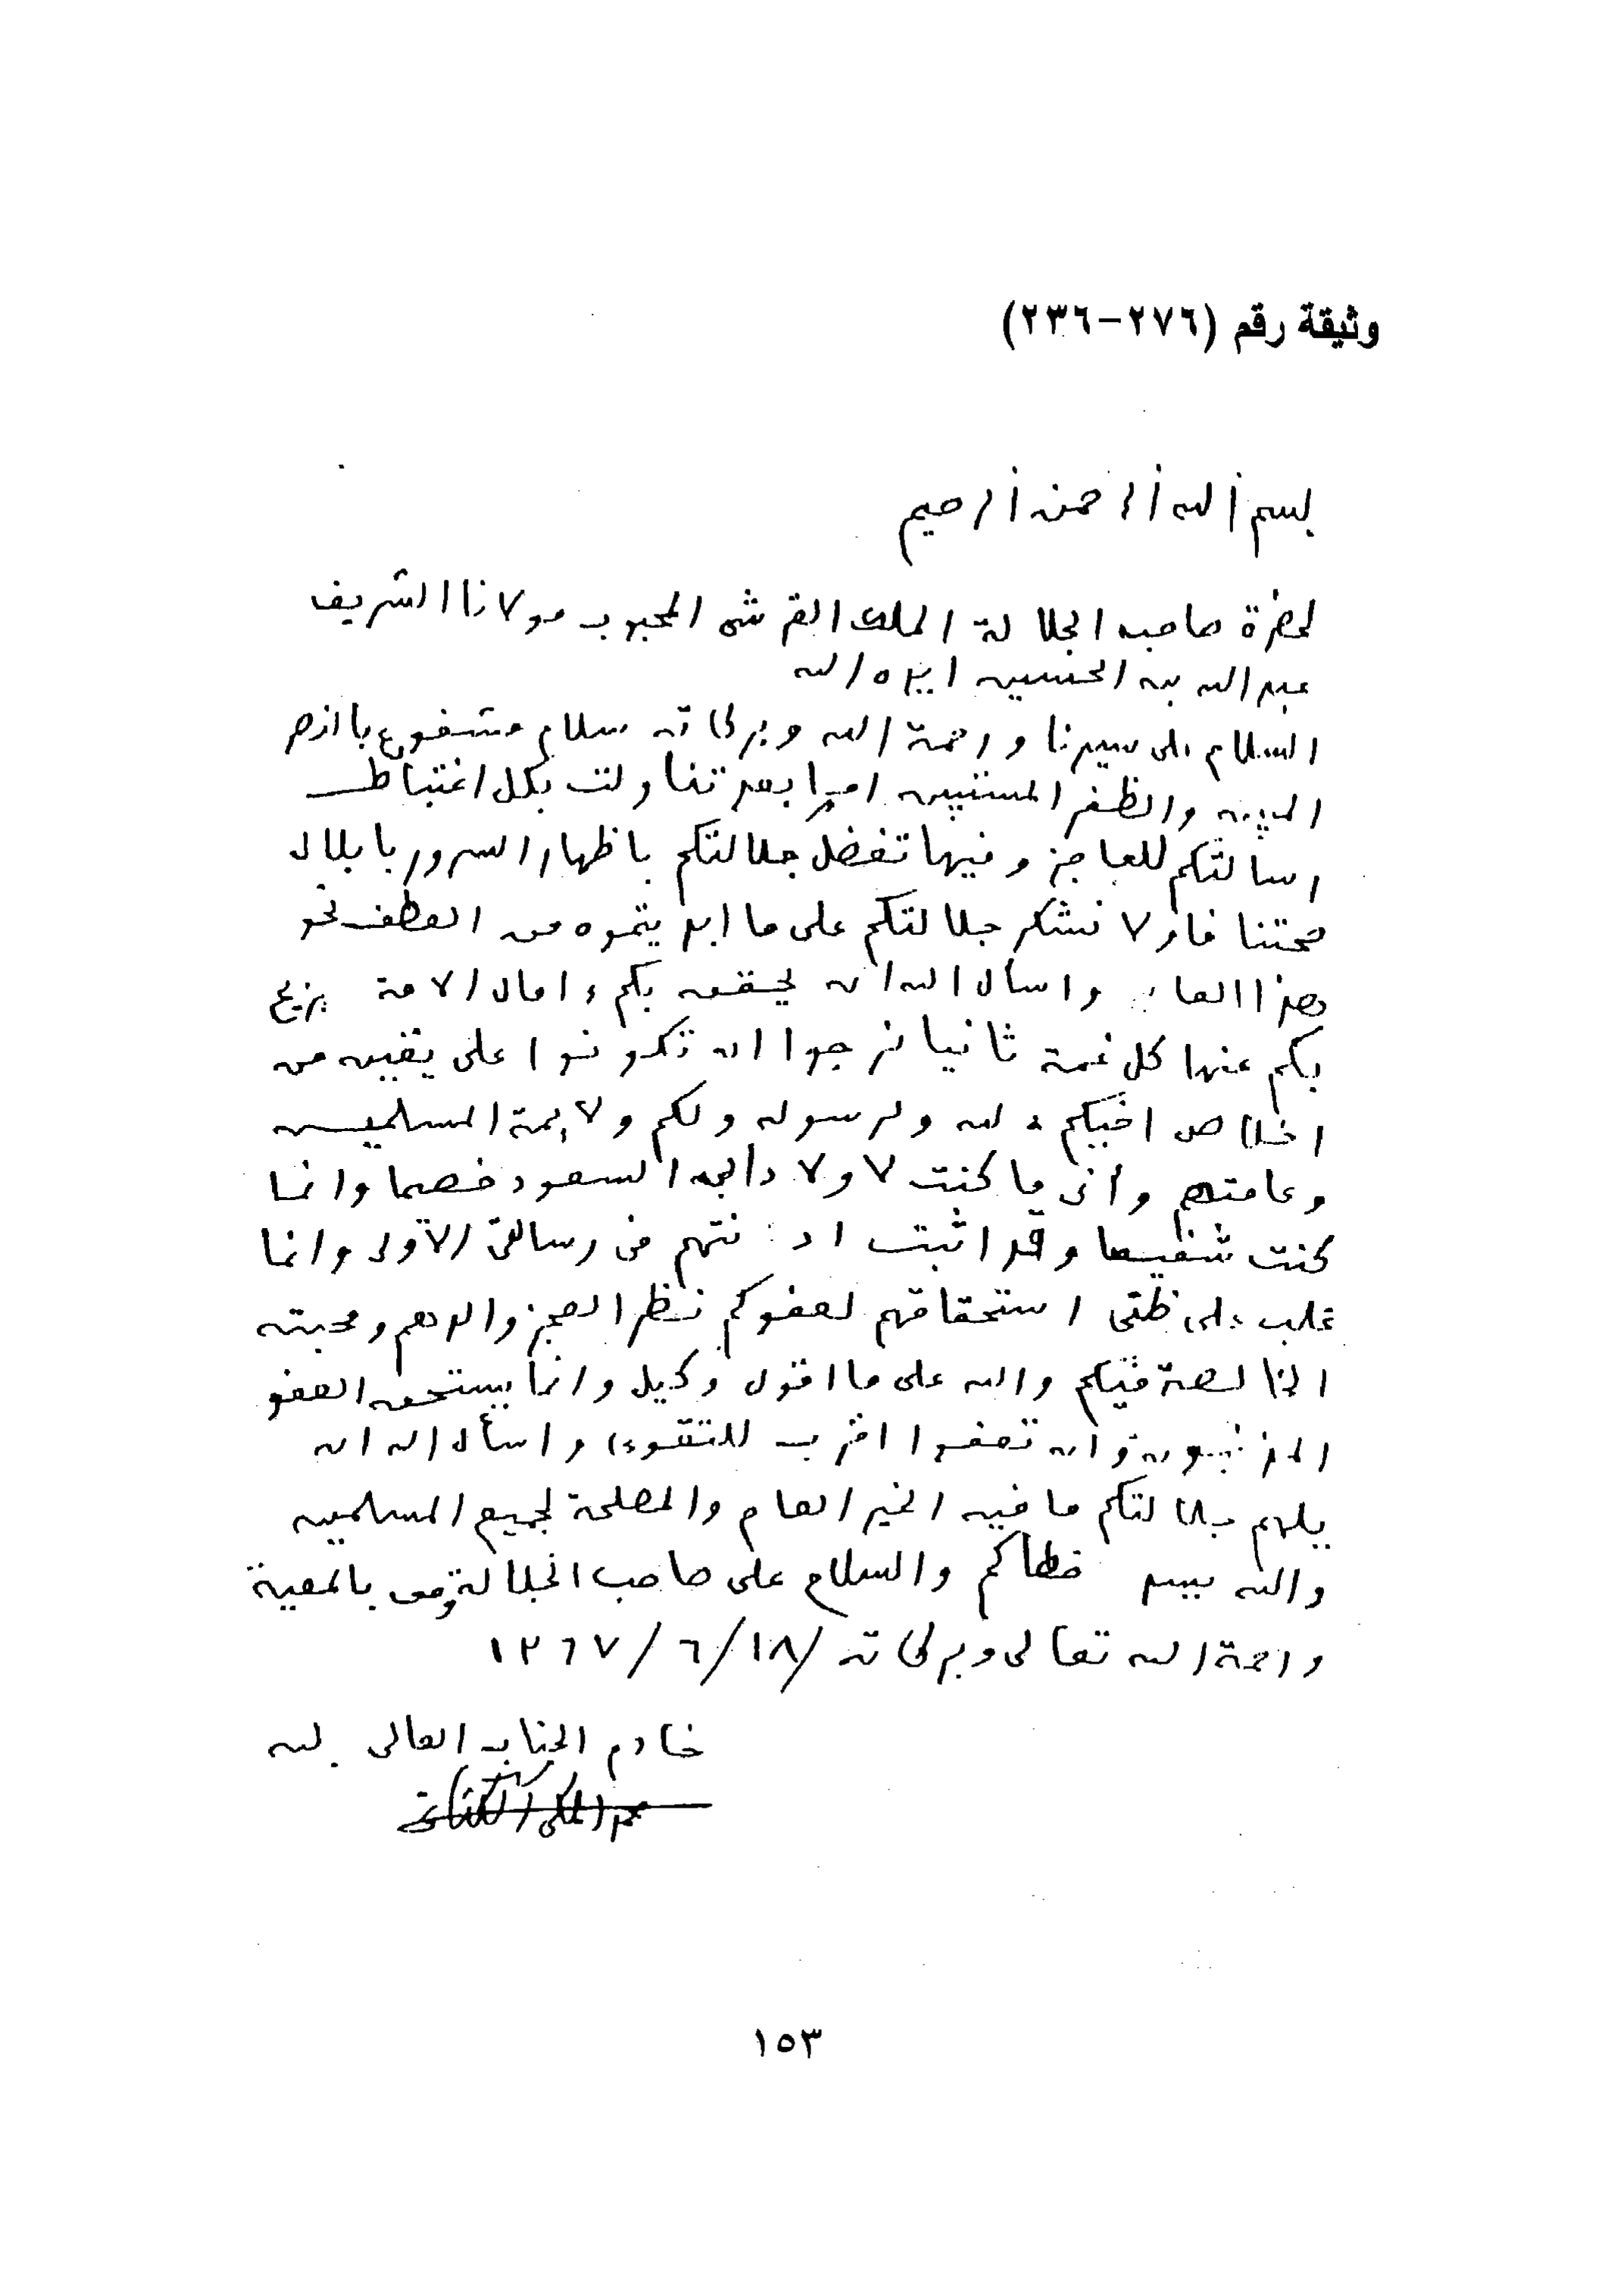 وثيقة رقم (٢٧٦-٢٣٦)
بسم الله الرحمن الرحيم
لحضرة صاحب الجلالة الملك القرشى المحبوب مولانا الشريف
عبدالله بن الحسين ايده الله
السلام على سيدنا ورحمة الله وبركاته سلام مشفوع بالنصر
المبين والظفر المستبين اما بعد تناولت بكل اغتباط
رسالتكم للعاجز وفيها تفضل جلالتكم باظهار السرور بابلال
صحتنا فاولا نشكر جلالتكم على ما ابديتموه من العطف نحو
هذا العاجز واسأل الله ان يحقق بكم امال الامة يزيح
بكم عنها كل غمة ثانيا نرجوا ان تكونوا على يقين من
اخلاص اخيكم لله ولرسوله ولكم ولايمة المسلمين
وعامتهم وأنى ما كنت لاولادابي السعود خصيما وانما
كنت شفيعا وقد اثبت ادانتهم فى رسالتى الأولى وانما
غلب على ظنى استحقاقهم لعفوكم نظرا لعجز والدهم ومحبته
الخالصة فيكم والله على ما اقول وكيل وانما يستحق العفو
المذنبون وان تعفوا اقرب للتقوى واسأل الله ان
يلهم جلالتكم ما فيه الخير العام والمصلحة لجميع المسلمين
والله يسدد خطاكم والسلام على صاحب الجلالة ومن بالمعية
ورحمة الله تعالى وبركاته ١٨/ ٦/ ١٣٦٧
خادم الجناب العالى لله
محمد المكى الكتانى
١٥٣